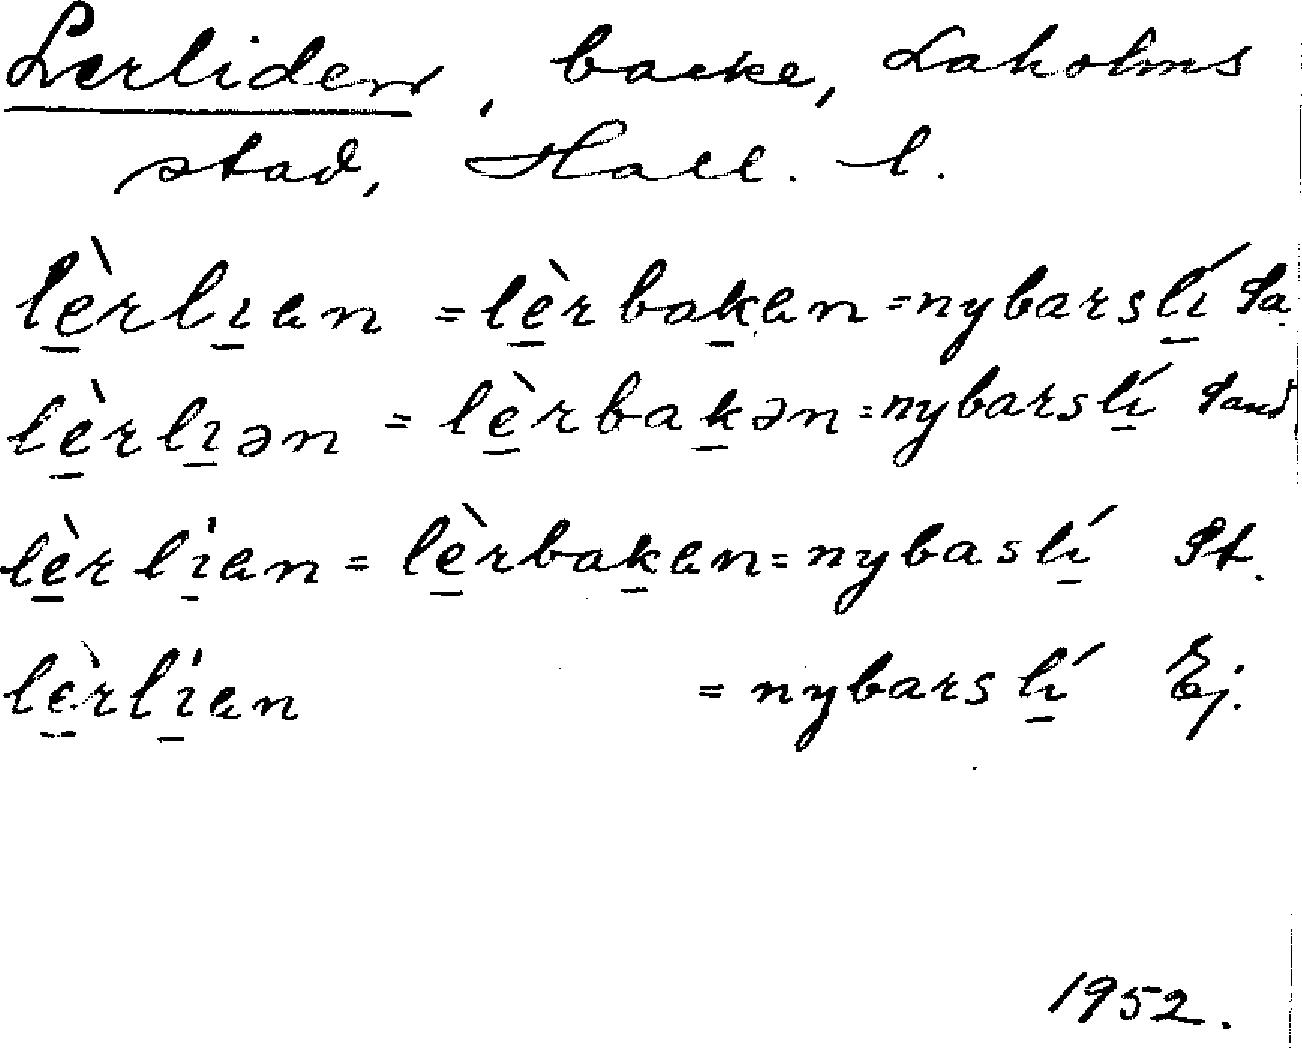 Lerliden, backe, Laholms
stad, Hall. l.
lè̱rlı̱en = lè̱rbaḵen = nybarslí̱ Sa
lè̱rlı̱ən = lè̱rbaḵən = nybarslí̱ Sand
lè̱rli̱en = lè̱rbaḵen = nybaslí̱ St.
lè̱rli̱en = nybarslí̱ Ej.
1952.